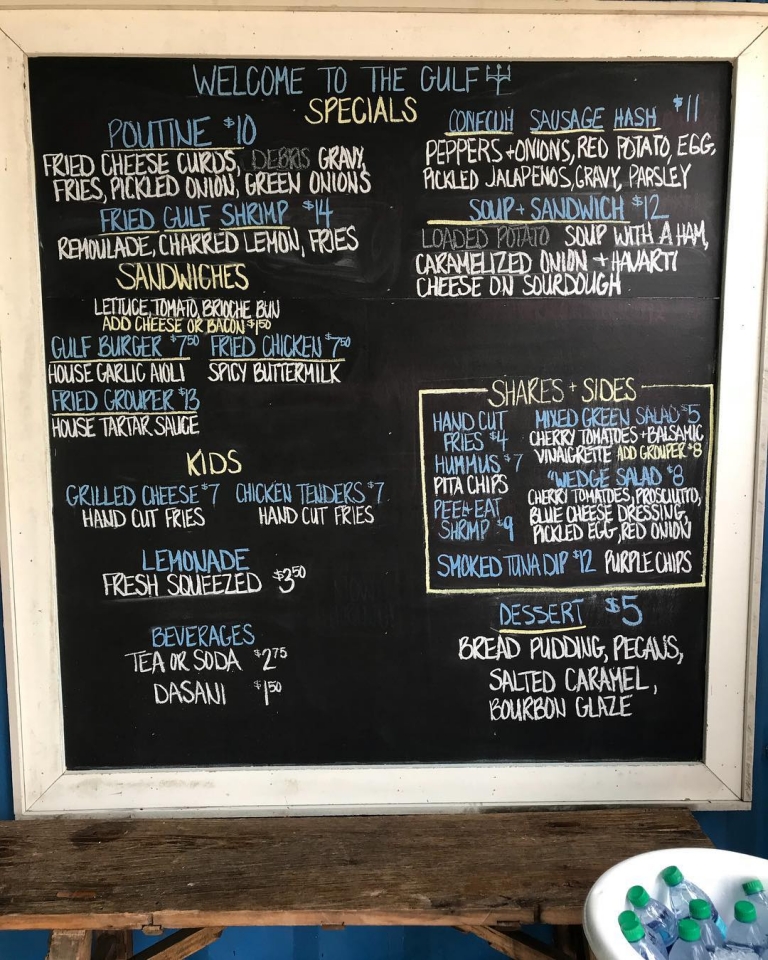 WELCOME TO THE GULF
SPECIALS
POUTINE $10
FRIED CHEESE CURDS, DEBRIS GRAVY,
FRIES, PICKLED ONION, GREEN ONIONS
FRIED GULF SHRIMP $14
REMOULADE, CHARRED LEMON, FRIES
CONECUH SAUSAGE HASH $11
PEPPERS + ONIONS, RED POTATO, EGG,
PICKLED JALAPENOS, GRAVY, PARSLEY
SOUP + SANDWICH $12
LOADED POTATO SOUP WITH A HAM,
CARAMELIZED ONION + HAVARTI
CHEESE ON SOURDOUGH
SANDWICHES
LETTUCE, TOMATO, BRIOCHE BUN
ADD CHEESE OR BACON $1.50
GULF BURGER $7.50 FRIED CHICKEN $7.50
HOUSE GARLIC AIOLI SPICY BUTTERMILK
FRIED GROUPER $13
HOUSE TARTAR SAUCE
KIDS
GRILLED CHEESE $7 CHICKEN TENDERS $7
HAND CUT FRIES HAND CUT FRIES
LEMONADE
FRESH SQUEEZED $3.50
BEVERAGES
TEA OR SODA $2.75
DASANI $1.50
SHARES + SIDES
HAND CUT
FRIES $4
HUMMUS $7
PITA CHIPS
PEEL + EAT
SHRIMP $9
MIXED GREEN SALAD $5
CHERRY TOMATOES + BALSAMIC
VINAIGRETTE ADD GROUPER $8
"WEDGE SALAD $8
CHERRY TOMATOES, PROSCIUTTO,
BLUE CHEESE DRESSING,
PICKLED EGG, RED ONION
SMOKED TUNA DIP $12 PURPLE CHIPS
DESSERT $5
BREAD PUDDING, PECANS,
SALTED CARAMEL,
BOURBON GLAZE